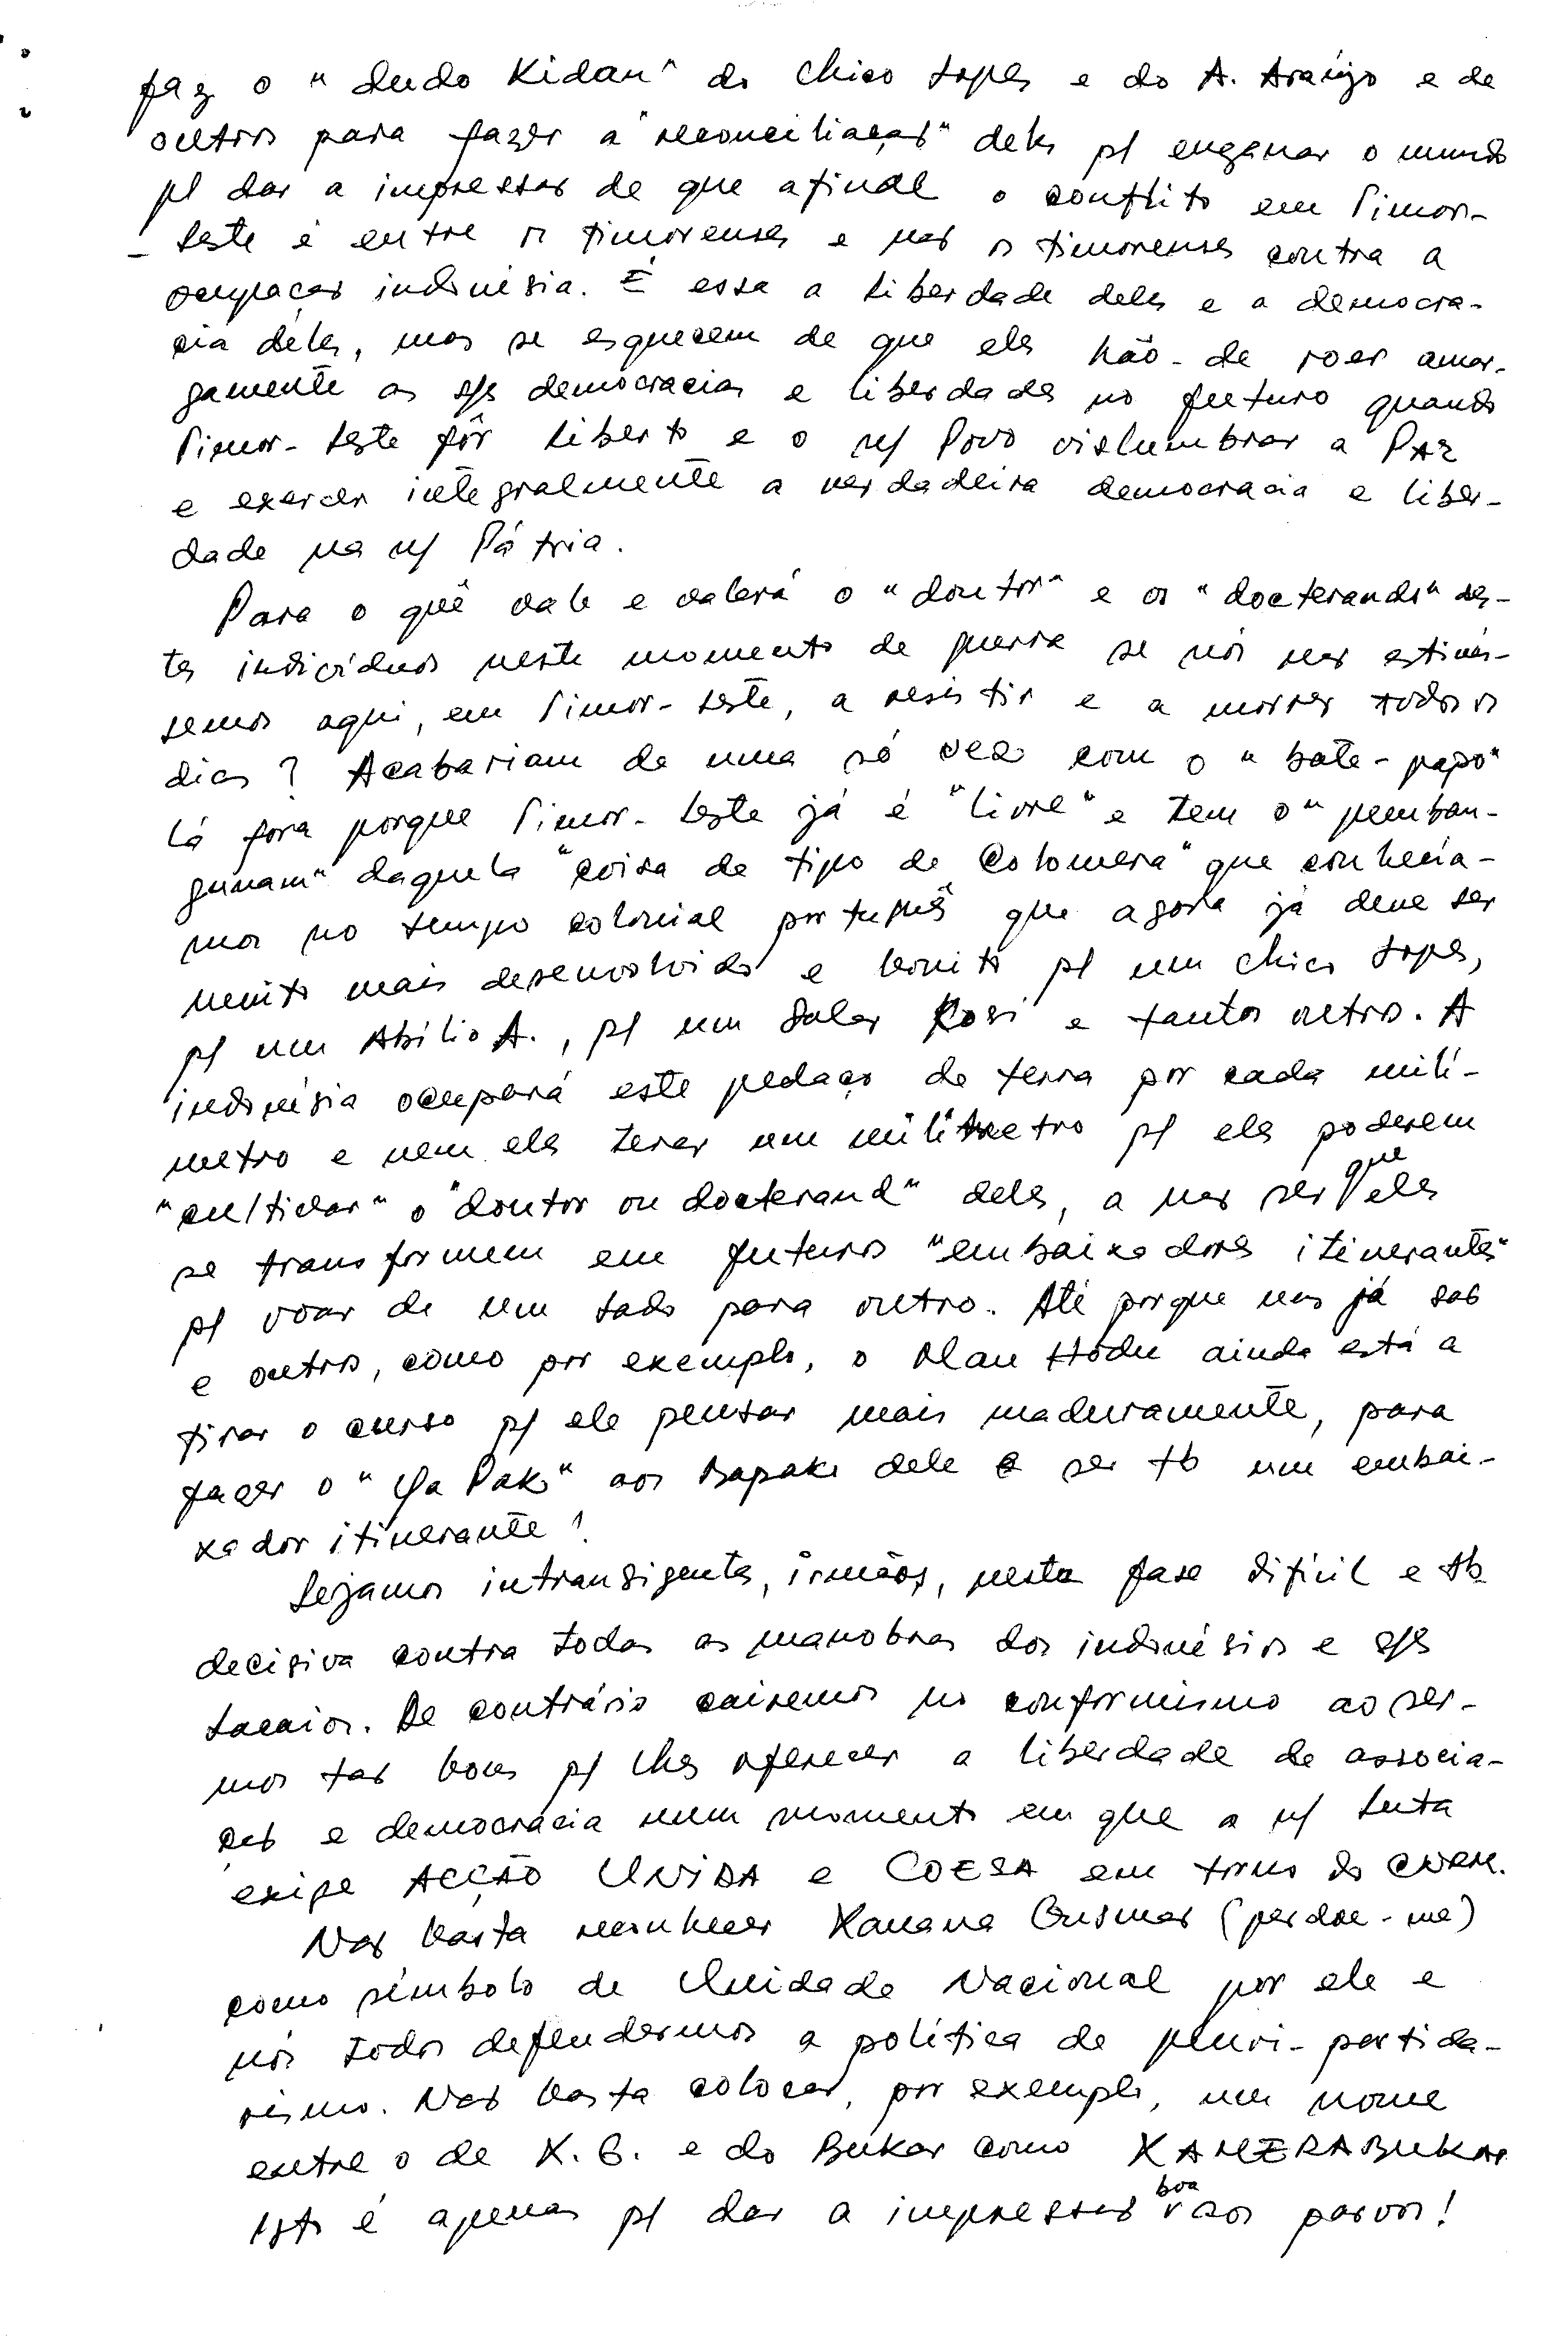 faz o "dudo Kidan" do Chico Lopes e do A. Araújo e de
outros para fazer a "reconciliação" deles p/ enganar o mundo
p/ dar a impressão de que afinal o conflito em Timor-
- Leste é entre os timorenses e não os timorenses contra a
ocupação indonésia. É essa a liberdade deles e a democra-
cia deles, mas se esquecem de que eles hão-de roer amar-
gamente as s/s democracias e liberdades no futuro quando
Timor-Leste fôr liberto e o n/ Povo vislumbrar a Paz
e exercer integralmente a verdadeira democracia e liber-
dade na n/ Pátria.
Para o quê vale e valerá o "doutor" e os "docterandos" des-
tes indivíduos neste momento de guerra se nós não estivés-
semos aqui, em Timor-Leste, a resistir e a morrer todos os
dias? Acabariam de uma só vez com o "bate-papo"
lá fora porque Timor-Leste já é "livre" e tem o "pemban-
gunam" daquela "coisa de tipo de Colomera" que conhecía-
mos no tempo colonial português que agora já deve ser
muito mais desenvolvido e bonito p/ um Chico Lopes,
p/ um Abílio A., p/ um Salar Kosi e tantos outros. A
indonésia ocupará este pedaço de terra por cada milí-
metro e nem eles terão um milímetro p/ eles poderem
"cultivar" o "doutor ou docterand" deles, a não ser que eles
se transformem em futuros "embaixadores itinerantes"
p/ voar de um lado para outro. Até porque uns já são
e outros, como por exemplo, o Mau Hodu ainda está a
tirar o curso p/ ele pensar mais maduramente, para
fazer o "Ya Pak" aos Bapaks dele e ser tb um embai-
xador itinerante!
Sejamos intransigentes, irmãos, nesta fase difícil e tb
decisiva contra todas as manobras dos indonésios e s/s
lacaios. De contrário cairemos no conformismo ao ser-
mos tão bons p/ lhes oferecer a liberdade de associa-
ção e democracia num momento em que a n/ luta
exige ACÇÃO UNIDA e COESA em torno do CNRM.
Não basta reconhecer Xanana Gusmão (perdoe-me)
como símbolo de Unidade Nacional por ele e
nós todos defendermos a política de pluri-partida-
rismo. Não basta colocar, por exemplo, um nome
entre o de K. G. e do Bukar como KAMERABUKAR
Isto é apenas p/ dar a impressão boa aos parvos!